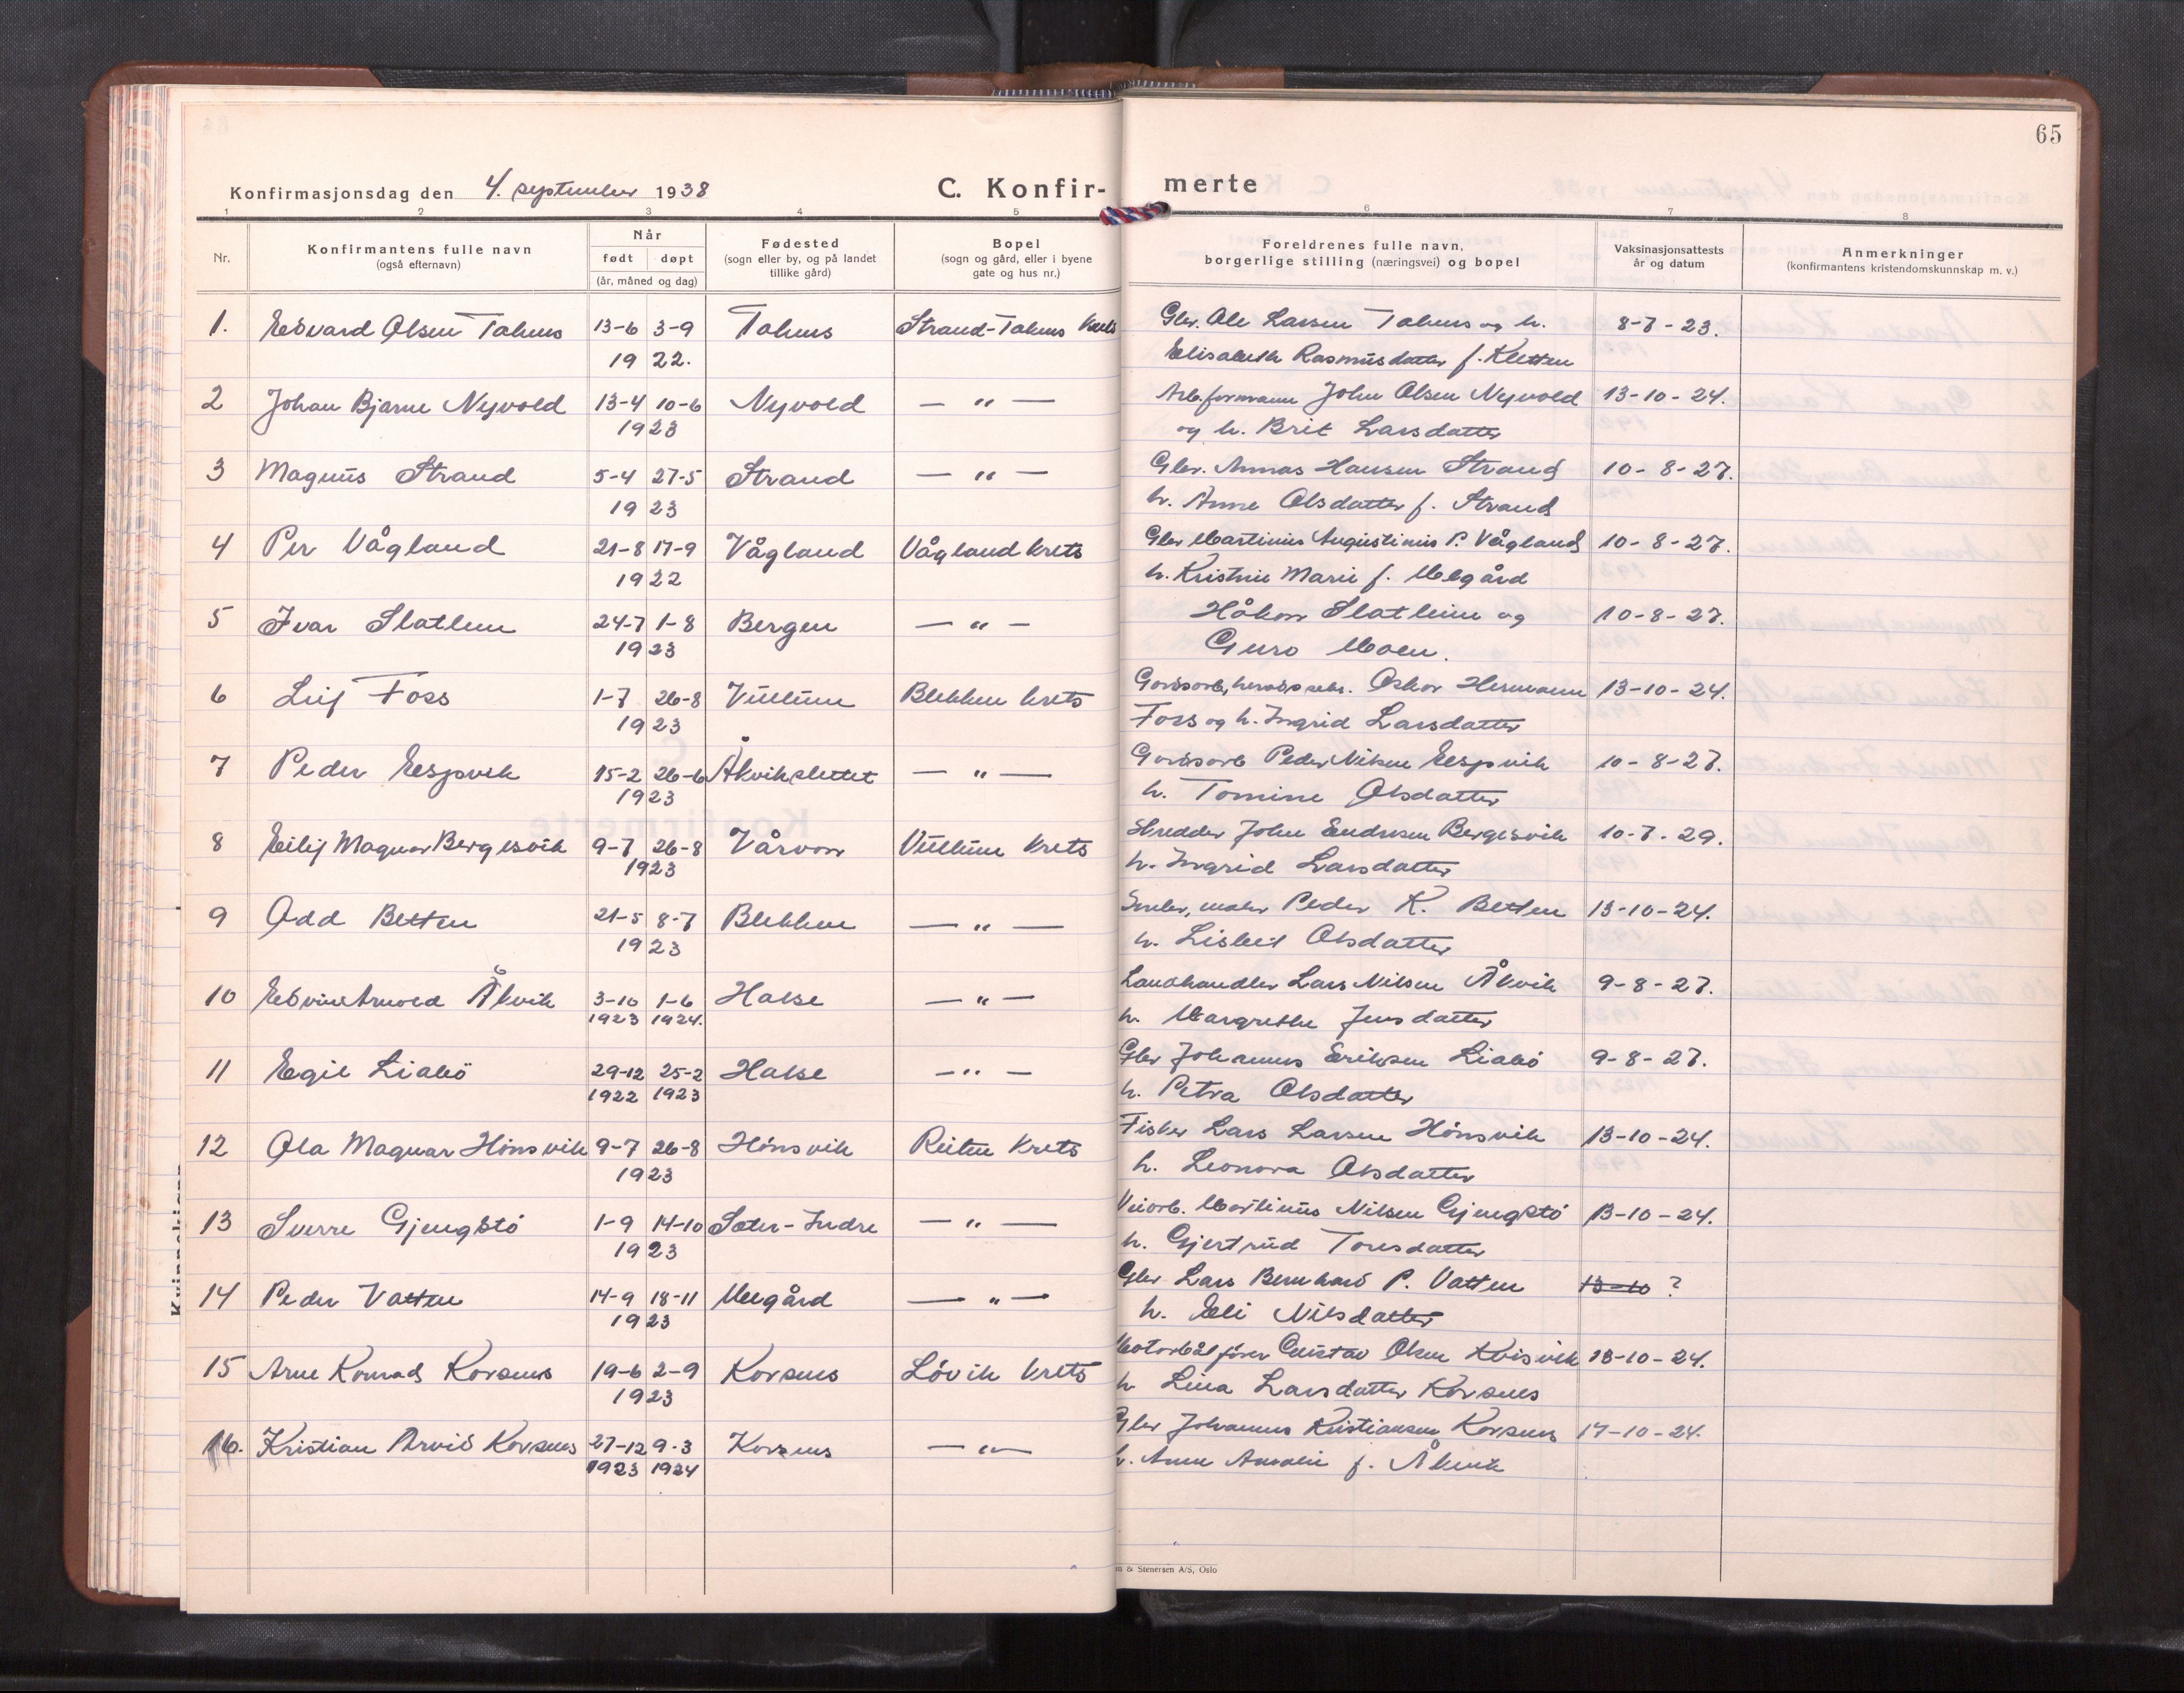 65
Konfirmasjonsdag den 4. september 1938
C. Konfirmerte
1 2 3 4 5 6 7 8
Nr.
Konfirmantens fulle navn (også efternavn)
Når født døpt (år, måned og dag)
Fødested (sogn eller by, og på landet tillike gård)
Bopel (sogn og gård, eller i byene gate og hus nr.)
Foreldrenes fulle navn, borgerlige stilling (næringsvei) og bopel
Vaksinasjonsattests år og datum
Anmerkninger (konfirmantens kristendomskunnskap m. v.)
1. Edvard Olsen Talnes 13-6 3-9 Talnes Strand-Talnes Krets Gbr. Ole Larsen Talnes og h. 8-7-23.
1922. Elisabeth Rasmusdatter f. Kletten
2 Johan Bjarne Nyvold 13-4 10-6 Nyvold — " — Arb.formann John Olsen Nyvold 13-10-24.
1923 og h. Brit Larsdatter
3 Magnus Strand 5-4 27-5 Strand — " — Gbr. Annas Hansen Strand 10-8-27.
1923 h. Anne Olsdatter f. Strand
4 Per Vågland 21-8 17-9 Vågland Vågland krets Gbr Martinus Augustinus P. Vågland 10-8-27.
1922 h. Kristine Marie f. Melgård
5 Ivar Slatlem 24-7 1-8 Bergen — " — Håkon Slatlem og 10-8-27.
1923 Guro Moen.
6 Leif Foss 1-7 26-8 Vullum Blekken krets Gårdsarb, Oskar Hermann 13-10-24.
1923 Foss og h. Ingrid Larsdatter
7 Peder Espvik 15-2 26-6 Åkvikslettet — " — Gårdsarb Peder Nilsen Espvik 10-8-27.
1923 h. Tomine Olsdatter
8 Eilif Magnar Bergesvik 9-7 26-8 Vårvon Vullum krets Skredder John Endresen Bergesvik 10-7-29.
1923 h. Ingrid Larsdatter
9 Odd Betten 21-5 8-7 Blekken — " — maler Peder K. Betten 13-10-24.
1923 h. Lisbet Olsdatter
10 Edvin Arnold Åkvik 3-10 1-6 Halse — " — Landhandler Lars Nilsen Åkvik 9-8-27.
1923 1924. h. Margrethe Jensdatter
11 Egil Liabö 29-12 25-2 Halse — " — Gbr Johannes Eriksen Liabö 9-8-27.
1922 1923 h. Petra Olsdatter
12 Ola Magnar Hönsvik 9-7 26-8 Hönsvik Reiten Krets Fisker Lars Larsen Hönsvik 13-10-24.
1923 h. Leonora Olsdatter
13 Sverre Gjengstö 1-9 14-10 Sæter-Indre — " — Veiarb. Martinus Nilsen Gjengstö 13-10-24.
1923 h. Gjertrud Toresdatter
14 Peder Vatten 14-9 18-11 Melgård — " — Gbr Lars Bernhard P. Vatten 13-10 ?
1923 h. Eli Nilsdatter
15 Arne Konrad Korsnes 19-6 2-9 Korsnes Lövik krets Motorbåtförer Gustav Olsen Kvisvik 13-10-24.
1923 h Lina Larsdatter Korsnes
16. Kristian Arvid Korsnes 27-12 9-3 Korsnes — " — Gbr Johannes Kristiansen Korsnes 17-10-24.
1923 1924 h. Anne Amalie f. Åkvik
& Stenersen A/S, Oslo